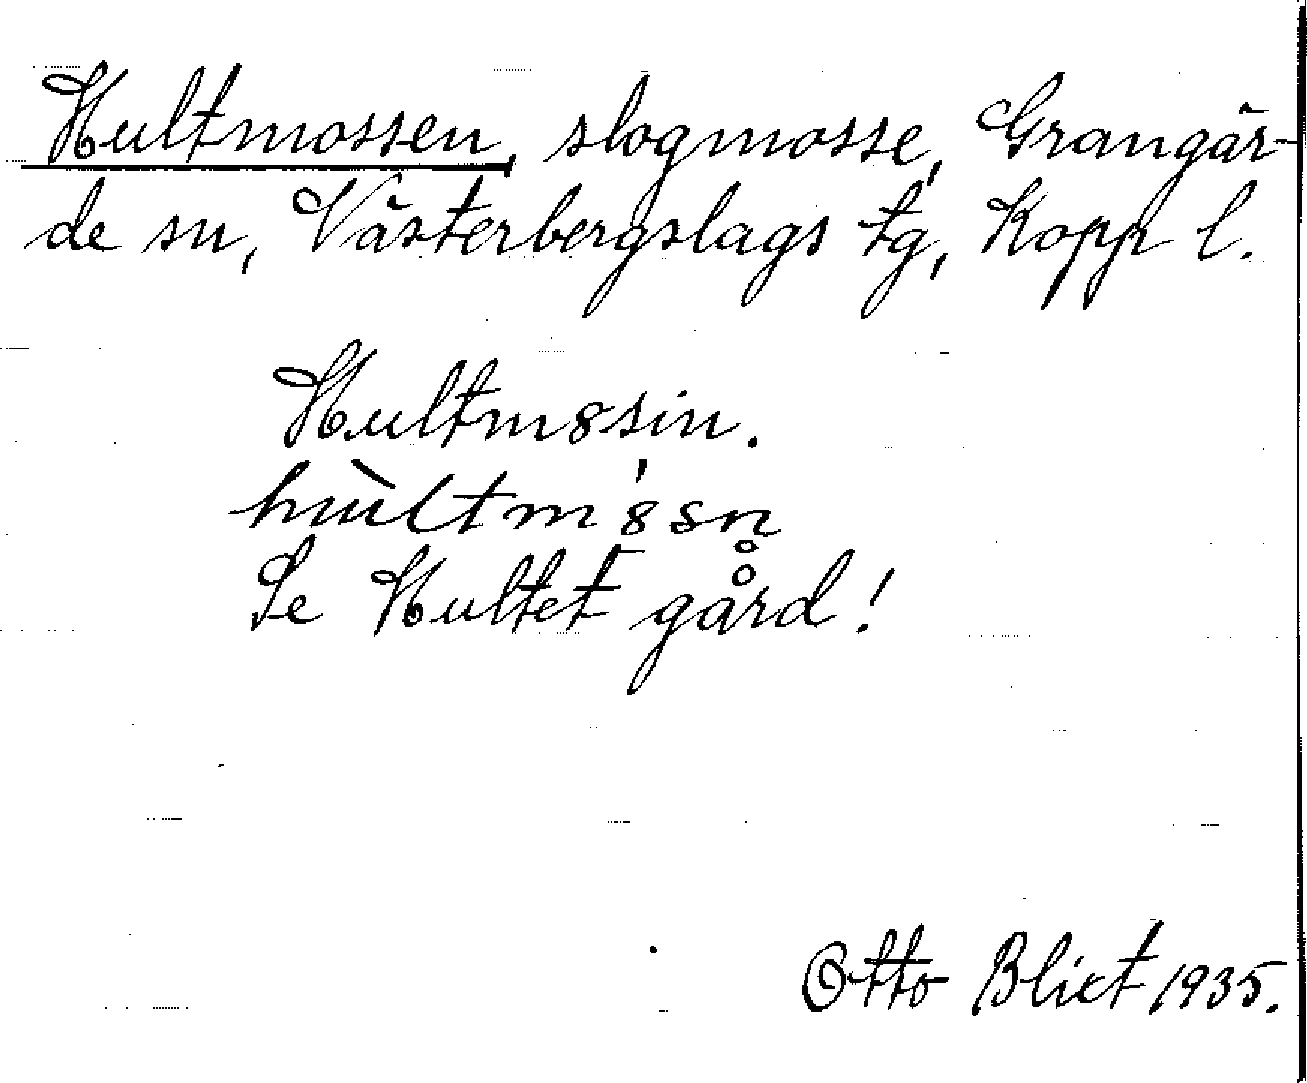 Hultmossen, slogmosse, Grangär-
de sn, Västerbergslags tg, Kopp l.
Hultm8sin.
hùltm8́sn̥
Se Hultet gård!
Otto Blixt 1935.